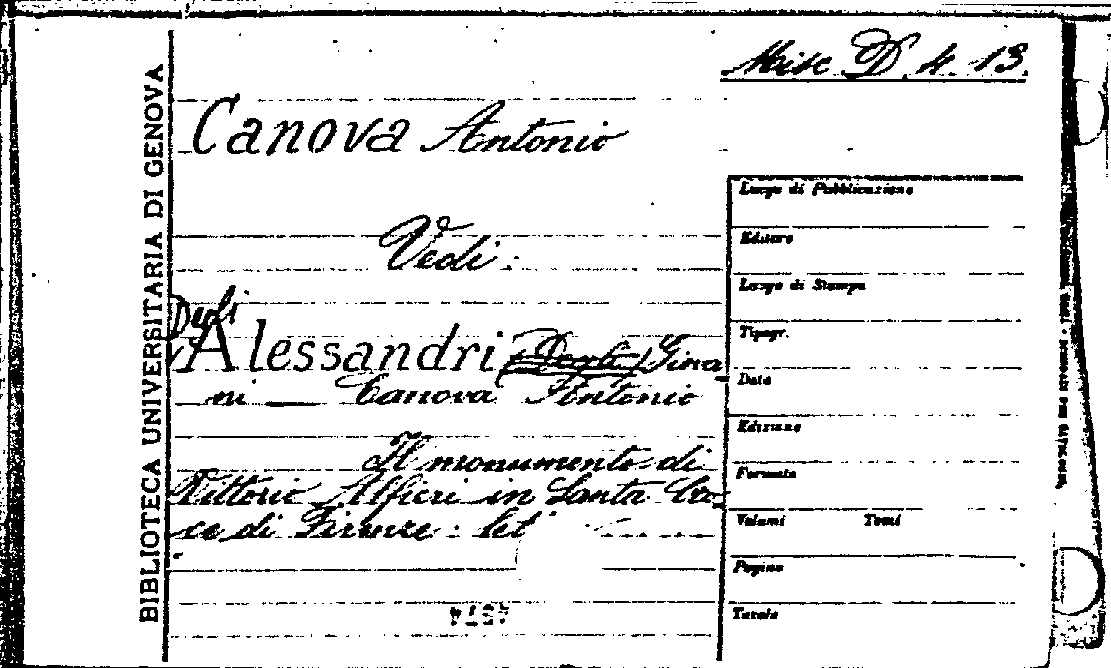 Misc. D. 4. 13.
BIBLIOTECA UNIVERSITARIA DI GENOVA
Canova Antonio
Vedi:
Degli
Alessandri (Degli) Gina-
ni — Canova Antonio
Il monumento di
Vittorio Alfieri in Santa Cro-
ce di Firenze: let
Luogo di Pubblicazione
Editore
Luogo di Stampa
Tipogr.
Data
Edizione
Formato
Volumi Tomi
Pagine
Tavole